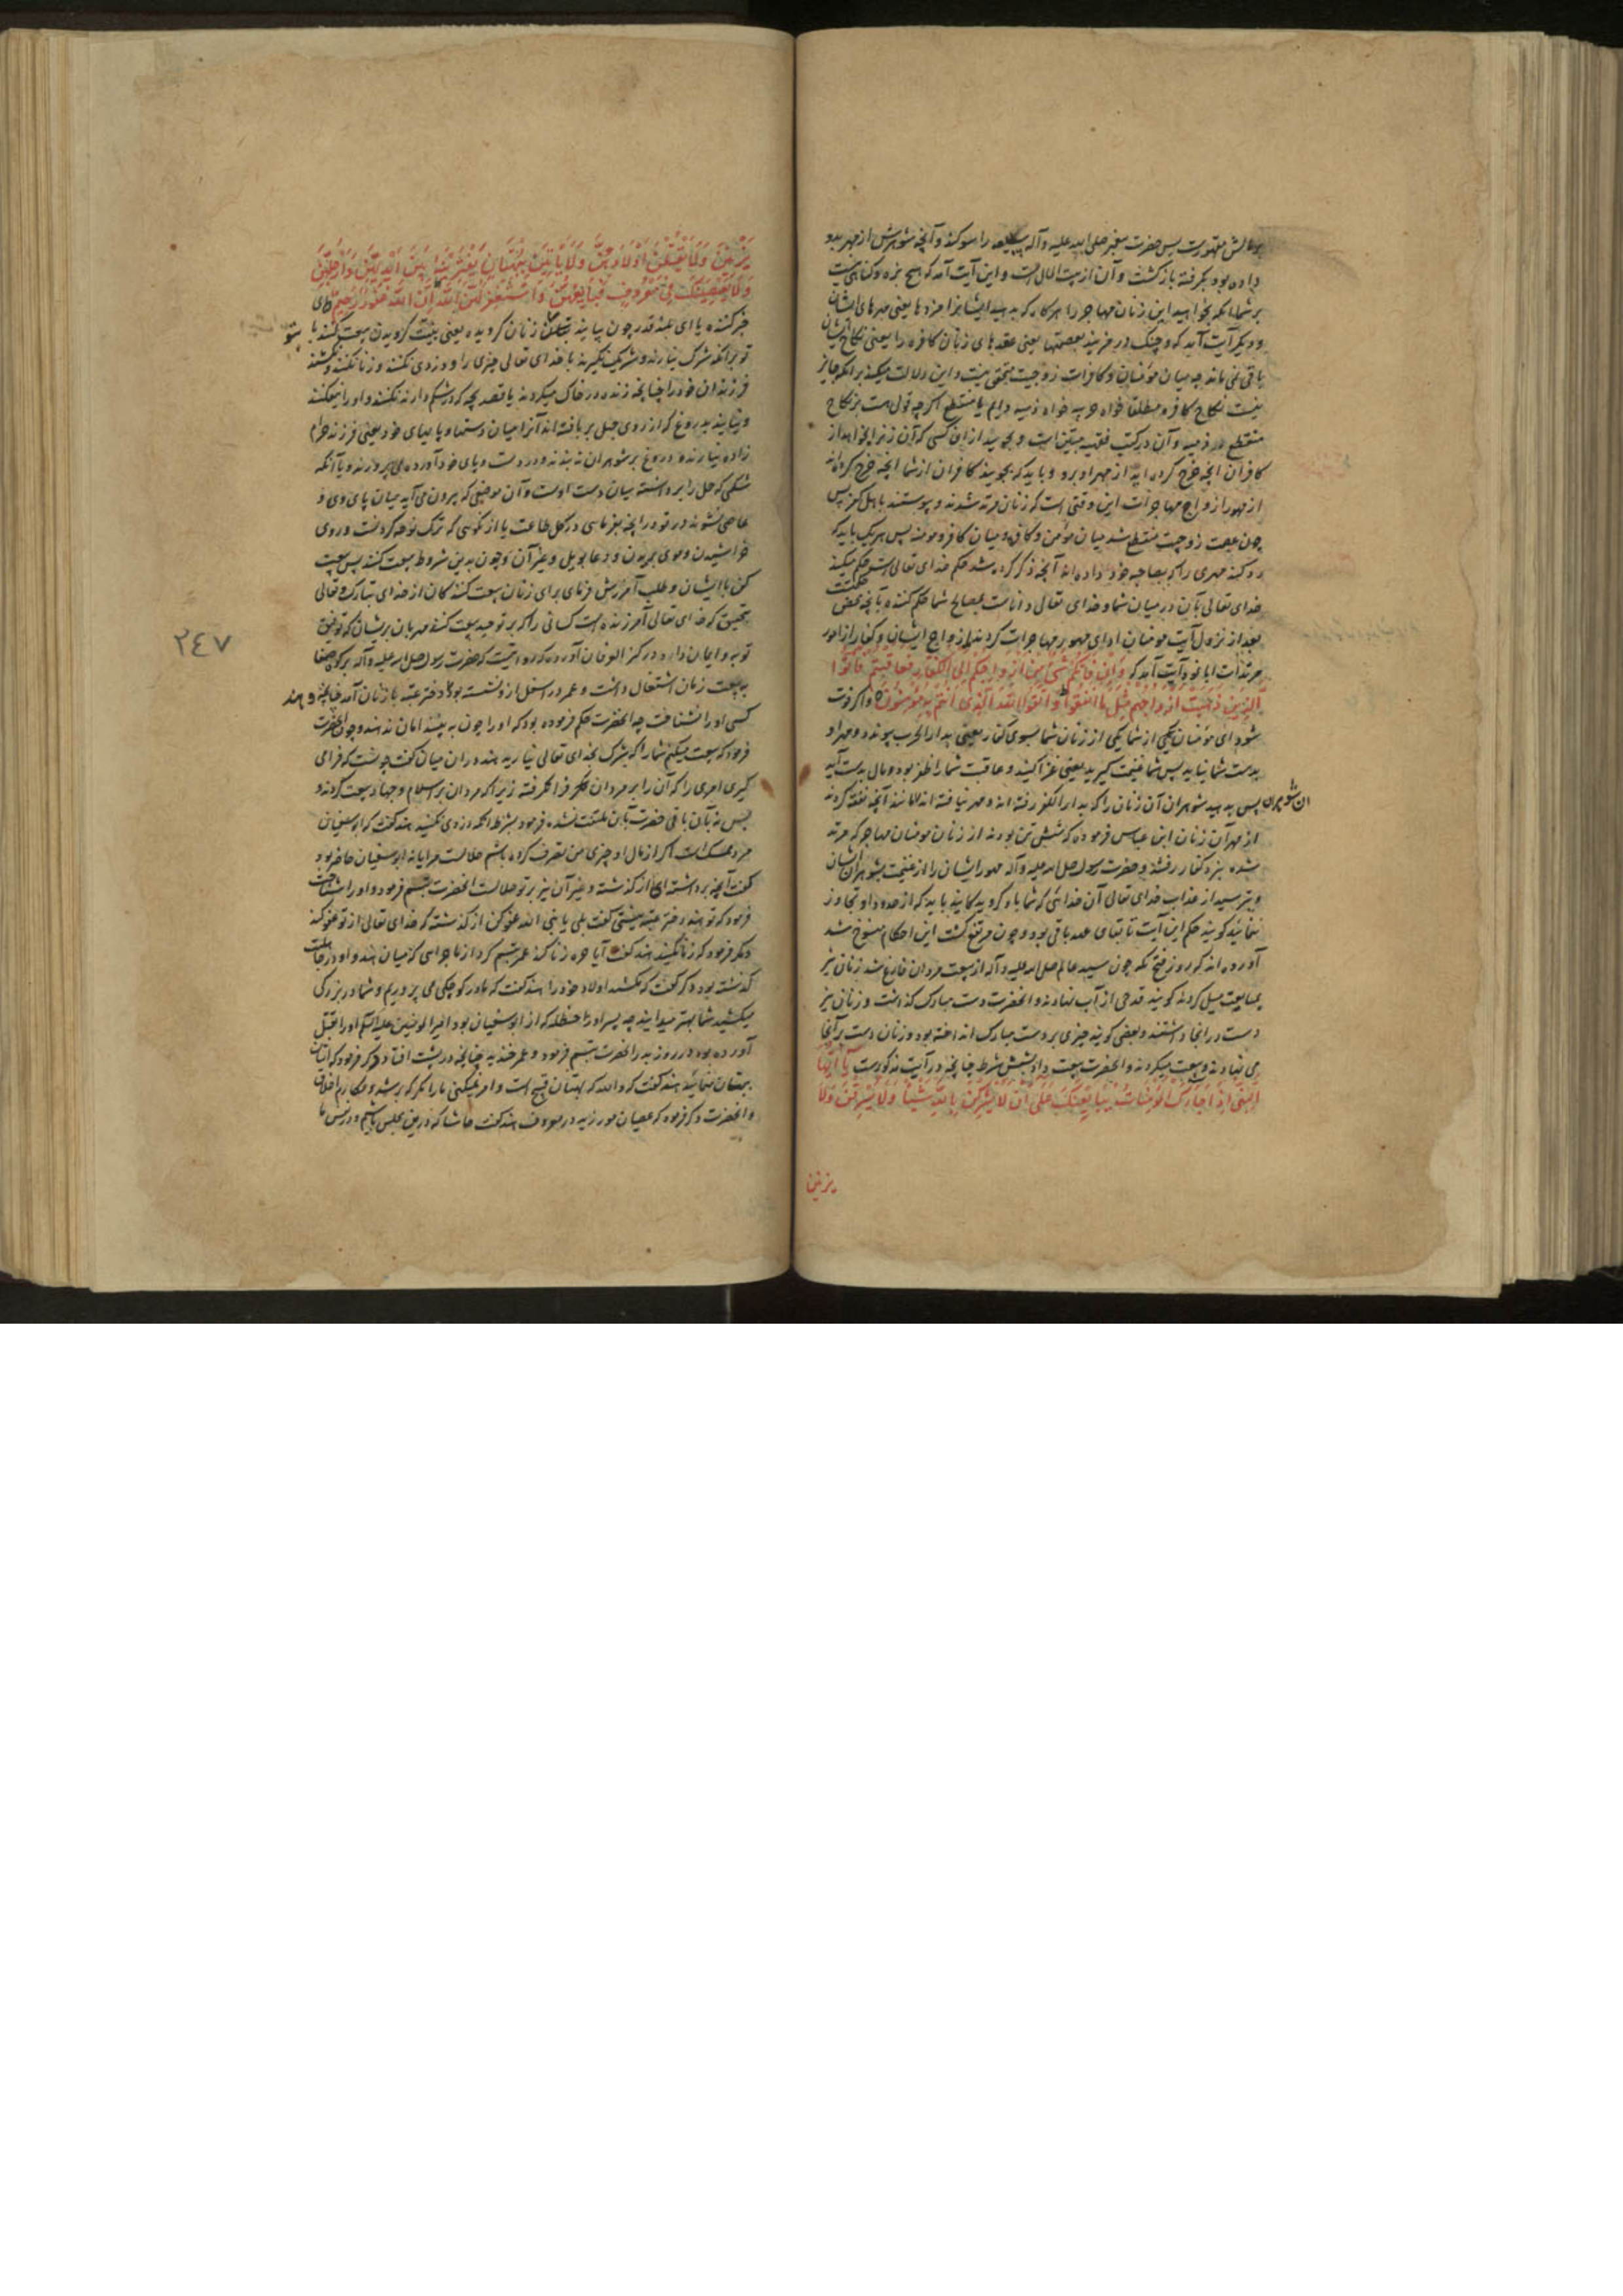 پس حضرت پیغمبر صلی الله علیه وآله را سوکند و آنچه شوهرش از مهر بدو
داده بود بکرفته بازکشت و آن از بیت المال است و این آیت آمد که هیچ بزه و کناهی نیست
بر شما آنکه بخواهید این زنان مهاجر را هرکاه که بدهید ایشانرا مزدها یعنی مهرهای ایشان
و دیکر آیت آمد که و چنک در مزنید بعصمتها یعنی عقدهای زنان کافره را یعنی نکاح ایشان
باقی نمی ماند چه میان مؤمنان و کافرات زوجیت متحقق نیست و این دلالت میکند برانکه جایز
نیست نکاح کافره مطلقا خواه حربیه خواه ذمیه دایم یا منقطع اکرچه قول هست بر نکاح
منقطع در ذمیه و آن در کتب فقه مبین است و بجویید از آن کسی که آن زنرا بخواهد از
کافران آنچه خرج کرده اید از مهر او برو و باید که بجویند کافران از شما آنچه خرج کرده اند
از مهور ازواج مهاجرات این وقتی است که زنان مرتد شدند و پیوستند باهل کفر پس
چون عصمت زوجیت منقطع شد میان مؤمن و کافره و میان کافر و مومنه پس هر یک باید که
رد کنند مهری را که بصاحبه خود داده اند آنچه ذکر کرده شد حکم خدای تعالی است حکم میکند
خدای تعالی بآن در میان شما و خدای تعالی داناست بمصالح شما حکم کننده بآنچه محض حکمتست
بعد از نزول آیت مومنان ادای مهور مهاجرات کردند بازواج ایشان و کفار از امور
مرتدات ابا نمود آیت آمد که وَاِنْ فَاتَكُمْ شَيْءٌ مِنْ اَزْوَاجِكُمْ اِلَى الْكُفَّارِ فَعَاقَبْتُمْ فَآتُوا
الَّذِينَ ذَهَبَتْ اَزْوَاجُهُمْ مِثْلَ مَا اَنْفَقُوا وَاتَّقُوا اللهَ الَّذِي اَنْتُمْ بِهِ مُؤْمِنُونَ و اکر فوت
شود ای مؤمنان یکی از شما یکی از زنان شما بسوی کفار یعنی بدار الحرب پیوندد و مهر او
بدست شما نیاید پس شما غنیمت کیرید یعنی غزا کنید و عاقبت شما را ظفر بود و مال بدست آید
پس بدهید شوهران آن زنان را که بدار الکفر رفته اند و مهر نیافته اند مانند آنچه نفقه کردند ان شوهران
از مهر آن زنان ابن عباس فرموده که شش تن بودند از زنان مومنان مهاجر که مرتد
شده نزد کفار رفتند و حضرت رسول صلی الله علیه وآله مهور ایشان را از غنیمت بشوهران ایشان
و بترسید از عذاب خدای تعالی آن خدائی که شما باو کرویدکانید باید که از حدود او تجاوز
ننمائید کویند حکم این آیت تا بقای عهد باقی بود و چون مرتفع کشت این احکام منسوخ شد
آورده اند که روز فتح مکه چون سید عالم صلی الله علیه وآله از بیعت مردان فارغ شد زنان نیز
بمبایعت میل کردند کویند قدحی از آب نهادند و آنحضرت دست مبارک کذاشت و زنان نیز
دست در آنجا داشتند و بعضی کویند چیزی بر دست مبارک انداخته بود و زنان دست بر آنجا
می نهادند و بیعت میکردند و آنحضرت بیعت داد بشش شرط چنانچه در آیت مذکورست يَا اَيُّهَا
النَّبِيُّ اِذَا جَاءَكَ الْمُؤْمِنَاتُ يُبَايِعْنَكَ عَلَى اَنْ لَا يُشْرِكْنَ بِاللهِ شَيْئًا وَلَا يَسْرِقْنَ وَلَا
یزنین
يَزْنِينَ وَلَا يَقْتُلْنَ اَوْلَادَهُنَّ وَلَا يَأْتِينَ بِبُهْتَانٍ يَفْتَرِينَهُ بَيْنَ اَيْدِيهِنَّ وَاَرْجُلِهِنَّ
وَلَا يَعْصِينَكَ فِي مَعْرُوفٍ فَبَايِعْهُنَّ وَاسْتَغْفِرْ لَهُنَّ اللهَ اِنَّ اللهَ غَفُورٌ رَحِيمٌ ای
خبر کننده یا ای بلند قدر چون بیایند بتو زنان کرویده یعنی بنیت کرویدن بیعت کنند با
تو برانکه شرک نیارند و شریک نکیرند با خدای تعالی چیزی را و دزدی نکنند و زنا نکنند و نکشند
فرزندان خود را چنانچه زنده در خاک میکردند یا قصد بچه که در شکم دارند نکنند و او را نیفکنند
و نیایند بدروغ که از روی جهل بر بافته اند آنرا میان دستها و پایهای خود یعنی فرزند حرام
زاده نیارند و دروغ بر شوهران نه بندند و در دست و پای خود آورده می پرورند و یا آنکه
شکمی که حمل را برداشته میان دست اوست و آن موضعی که بیرون می آید میان پای وی و
عاصی نشوند در تو در آنچه بفرمایی در کل طاعت یا از نکوئی که ترک نوحه کردنست و روی
خراشیدن و موی بریدن و دعا بویل و غیر آن و چون بدین شروط بیعت کنند پس بیعت
کن با ایشان و طلب آمرزش فرمای برای زنان بیعت کنندکان از خدای تبارک و تعالی
بتحقیق که خدای تعالی آمرزنده است کسانی را که بر توحید بیعت کنند مهربان بریشان که توفیق
توبه و ایمان داد و در کنز العرفان آورده که روایتست که حضرت رسول صلی الله علیه وآله بر کوه صفا
به بیعت زنان اشتغال داشت و عمر در اسفل ازو نشسته بود هند دختر عتبه با زنان آمد چنانچه
کسی او را نشناخت چه آنحضرت حکم فرموده بود که او را چون به بینند امان ندهند و چون حضرت
فرمود که بیعت میکنم شما را که شرک بخدای تعالی نیارید هند در آن میان کفت چونست که فرا می
کیری امری را که آن را بر مردان فرا نکرفته زیرا که مردان بر اسلام و جهاد بیعت کردند و
بس نه بآن باقی حضرت باین ملتفت نشده فرمود بشرط آنکه دزدی نکنید هند کفت که ابوسفیان
مرد ممسک است اکر از مال او چیزی من تصرف کرده باشم حلالست مرا یا نه ابوسفیان حاضر بود
کفت آنچه برداشته ای از کذشته و غیر آن نیز بر تو حلالست آنحضرت تبسم فرمود و او را شناخت
فرمود که تو هند دختر عتبه نیستی کفت بلی یا نبی الله عفو کن از کذشته که خدای تعالی از تو عفو کند
دیکر فرمود که زنا نکنید هند کفت آیا حره زنا کند عمر تبسم کرد از ماجرایی که میان هند و او در جاهلیت
کذشته بود دیکر کفت که نکشید اولاد خود را هند کفت که ما در کوچکی می پروریم و شما در بزرکی
میکشید شما بهتر میدانید چه پسر او را حنظله که از ابوسفیان بود امیرالمومنین علیه السلام او را بقتل
آورده بود در روز بدر آنحضرت تبسم فرمود و عمر خندید چنانچه در پشت افتاد دیکر فرمود که اتیان
ببهتان منمائید هند کفت که والله که بهتان قبیح است و امر نمیکنی ما را مکر که برشد و مکارم اخلاق
و آنحضرت دیکر فرمود که عصیان مورزید در معروف هند کفت حاشا که درین مجلس باشیم و در نفس ما
٢٤٧